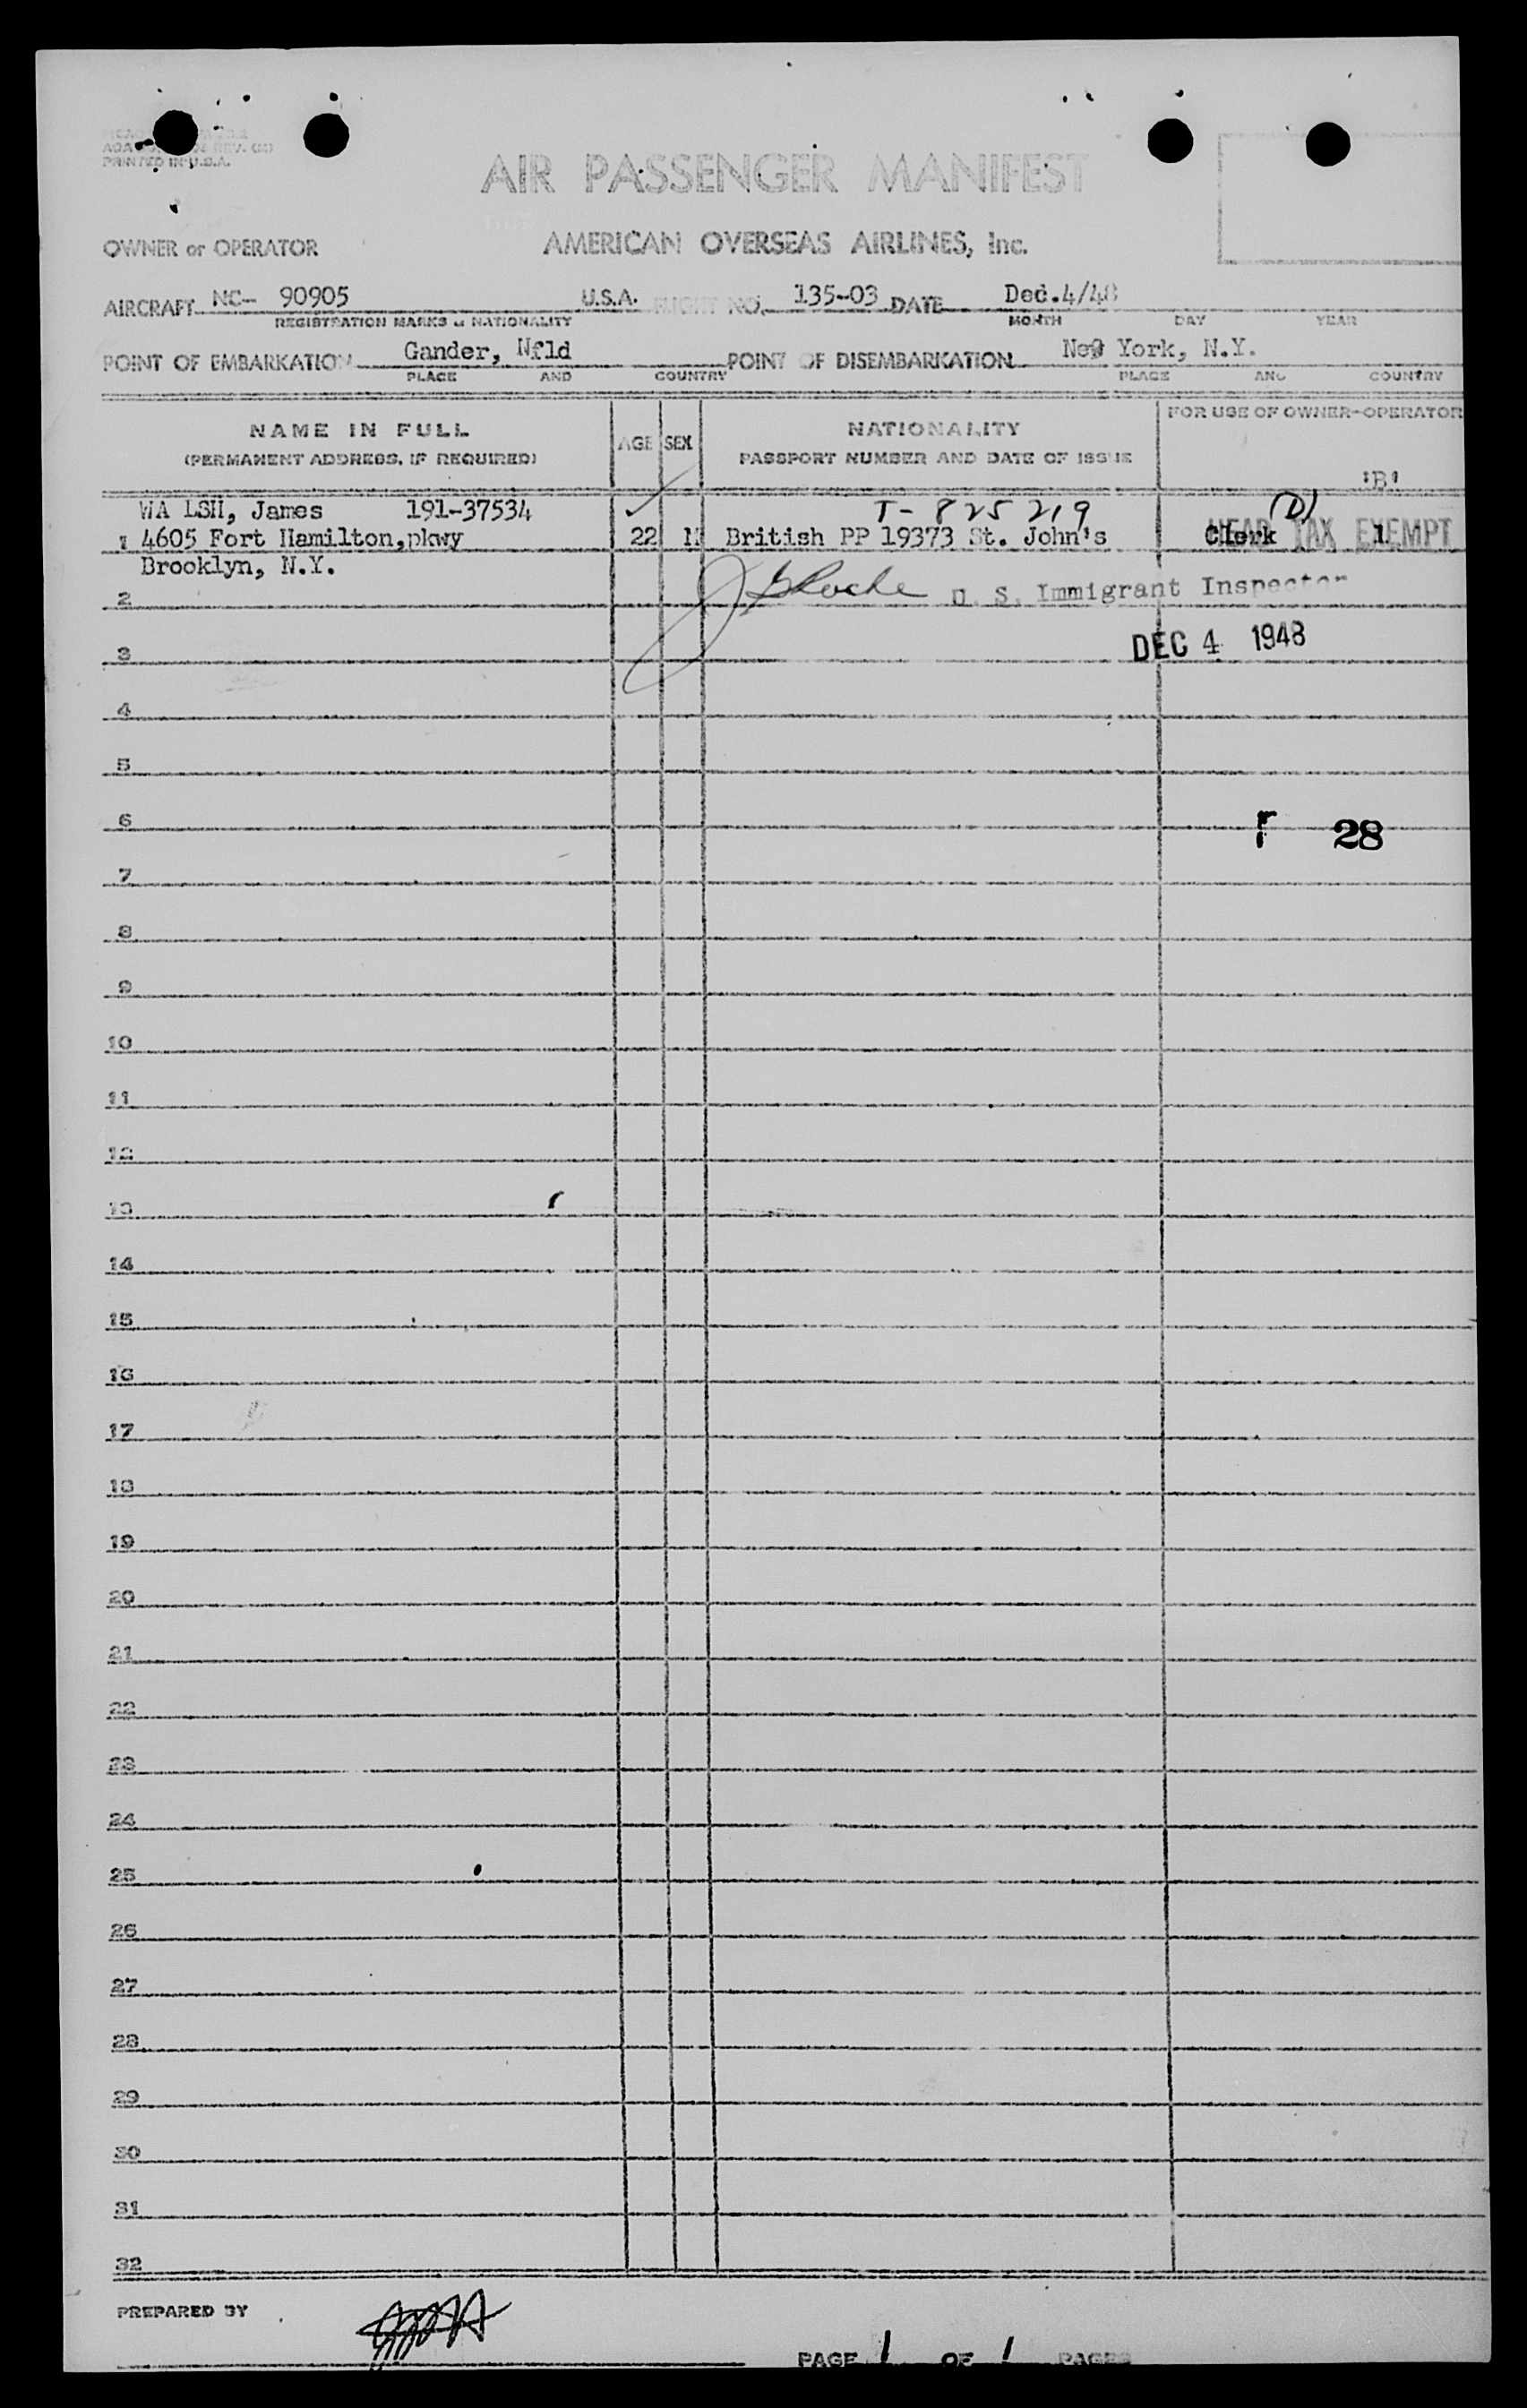 REV.
PRINTED IN U.S.A.
AIR PASSENGER MANIFEST
OWNER or OPERATOR AMERICAN OVERSEAS AIRLINES, Inc.
AIRCRAFT NC- 90905 U.S.A. FLIGHT NO. 135-03 DATE Dec.4/48
REGISTRATION MARKS & NATIONALITY MONTH DAY YEAR
POINT OF EMBARKATION Gander, Nfld POINT OF DISEMBARKATION New York, N.Y.
PLACE AND COUNTRY PLACE AND COUNTRY
NAME IN FULL AGE SEX NATIONALITY FOR USE OF OWNER-OPERATOR
(PERMANENT ADDRESS, IF REQUIRED) PASSPORT NUMBER AND DATE OF ISSUE
'B'
WA LSH, James 191-37534 T- 825 219 (D)
1 4605 Fort Hamilton,pkwy 22 M British PP 19373 St. John's Clerk HEAD TAX EXEMPT 1
Brooklyn, N.Y.
2 Roche U. S. Immigrant Inspector
3 DEC 4 1948
4
5
6 28
7
8
9
10
11
12
13
14
15
16
17
18
19
20
21
22
23
24
25
26
27
28
29
30
31
32
PREPARED BY
PAGE 1 OF 1 PAGES